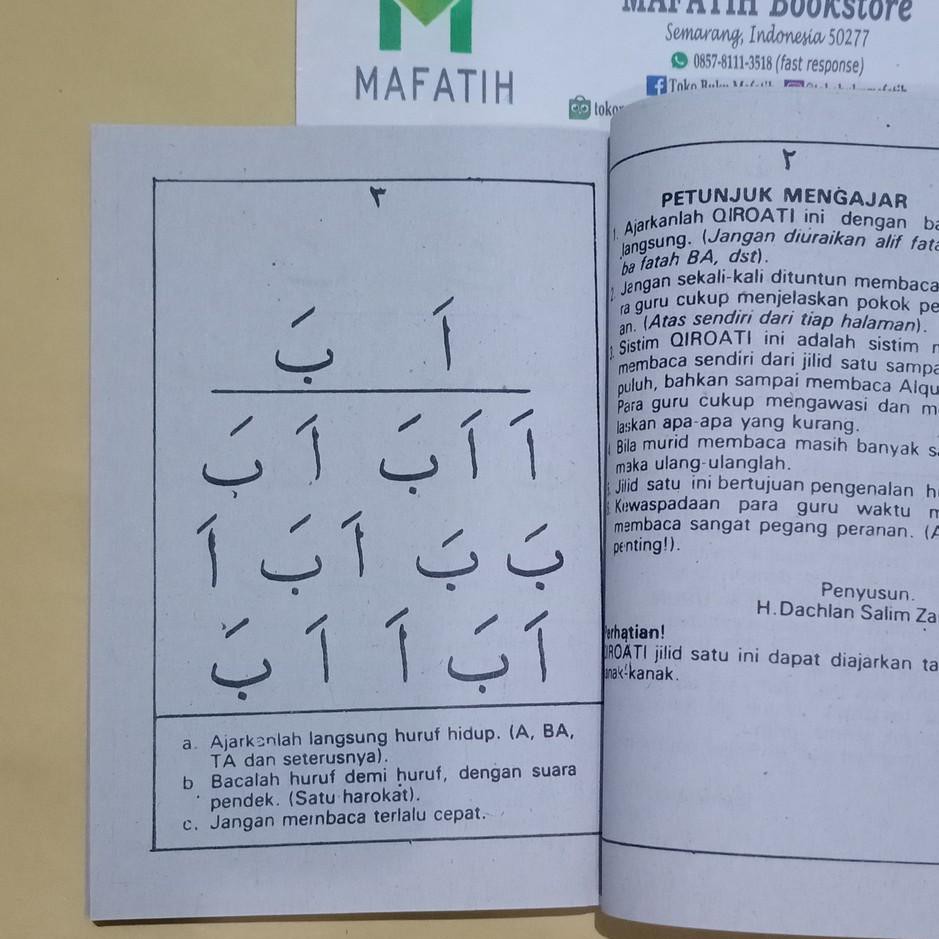 MAFATIH
MAFATIH Bookstore
Semarang, Indonesia 50277
0857-8111-3518 (fast response)
Toko Buku Mafatih
٢
PETUNJUK MENGAJAR
1. Ajarkanlah QIROATI ini dengan
langsung. (Jangan diuraikan alif
ba fatah BA, dst).
2. Jangan sekali-kali dituntun membaca
ra guru cukup menjelaskan pokok
an. (Atas sendiri dari tiap halaman).
3. Sistim QIROATI ini adalah sistim
membaca sendiri dari jilid satu
puluh, bahkan sampai membaca
Para guru cukup mengawasi dan
laskan apa-apa yang kurang.
Bila murid membaca masih banyak
maka ulang-ulanglah.
Jilid satu ini bertujuan pengenalan
Kewaspadaan para guru waktu
membaca sangat pegang peranan.
penting!).
Penyusun.
H.Dachlan Salim
Perhatian!
QIROATI jilid satu ini dapat diajarkan
anak-kanak.
٣
اَ بَ
اَ اَ بَ اَ بَ
بَ بَ اَ بَ اَ
اَ بَ اَ اَ بَ
a. Ajarkanlah langsung huruf hidup. (A, BA,
TA dan seterusnya).
b. Bacalah huruf demi huruf, dengan suara
pendek. (Satu harokat).
c. Jangan membaca terlalu cepat.